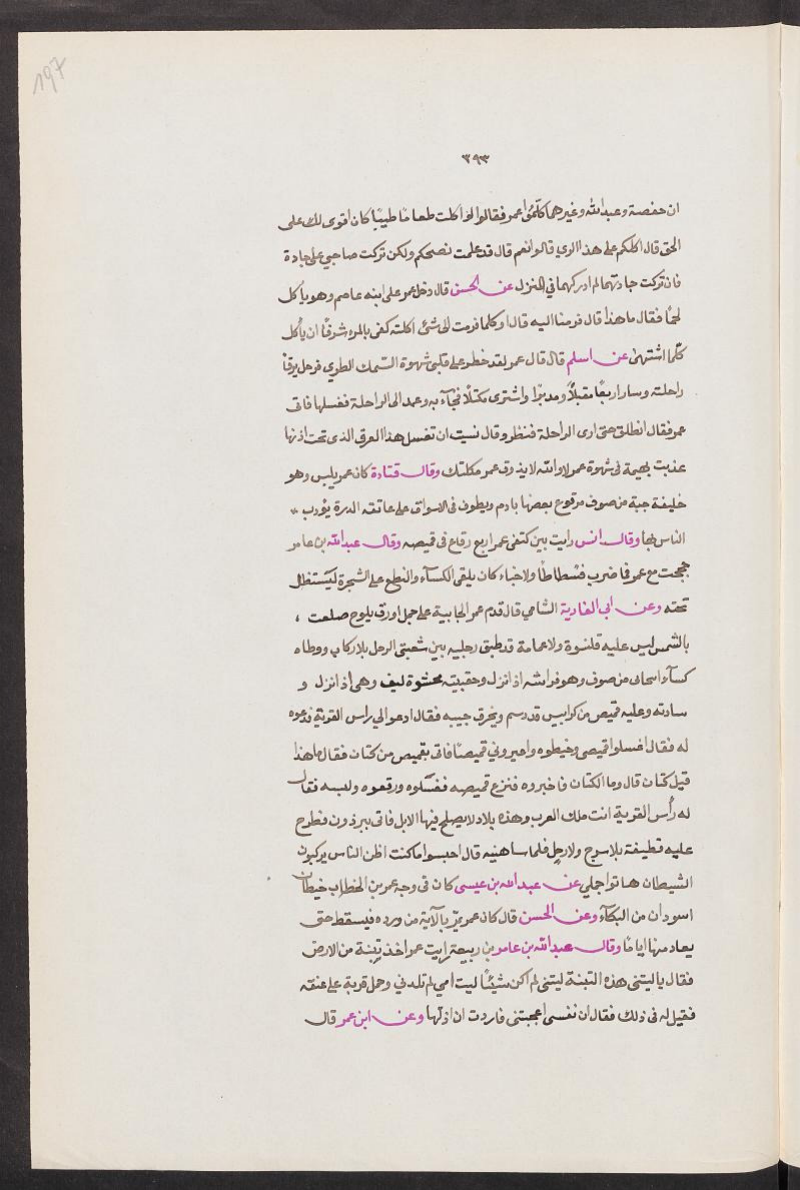 197
٣٩٣
ان حفصة وعبدالله وغيرهما كلّموا عمر فقالوا لو اكلت طعامًا طيبًا كان اقوى لك على
الحق قال اكلكم على هذا الراي قالوا نعم قال قد علمت نصحكم ولكن تركت صاحبي على جادة
فان تركت جادتهما لم ادركهما في المنزل عن الحسن قال دخل عمر على ابنه عاصم وهو ياكل
لحمًا فقال ما هذا قال قرمنا اليه قال او كلما قرمت الى شئ اكلته كفى بالمرء شرفًا ان ياكل
كلّما اشتهىٰ عن اسلم قال قال عمر لقد خطر على قلبى شهوة السّمك الطرى فرحل يرفأ
راحلته وسار اربعًا مقبلاً ومدبرًا واشترى مكتلًا فجآء به وعمد الى الراحلة فغسلها فاتى
عمر فقال انطلق حتى ارى الراحلة فنظر وقال نسيت ان تغسل هذا العرق الذى تحت اذنها
عذبت بهيمة فى شهوة عمر لا والله لا يذوق عمر مكتلك وقال قتادة كان عمر يلبس وهو
خليفة جبة من صوف مرقوع بعضها بادم ويطوف فى الاسواق على عاتقه الدرة يؤدب
الناس بها وقال انس رايت بين كتفى عمر اربع رقاع فى قميصه وقال عبدالله بن عامر
حججت مع عمر فما ضرب فسطاطًا ولا خباء كان يلقى الكسآء والنطع على الشجرة ليستظل
تحته وعن ابي الغادية الشامي قال قدم عمر الجابية على جمل اورق يلوح صلعت
بالشمس ليس عليه قلنسوة ولا عمامة قد طبق رجليه بين شعبتى الرحل بلا ركاب ووطاه
كسآء انبجانى من صوف وهو فراشه اذا نزل وحقيبته محشوة ليف وهى اذا نزل و
سادته وعليه قميص من كرابيس قد دسم وتخرق جيبه فقال ادعوا لي راس القرية فدعوه
له فقال اغسلوا قميصى وخيطوه واعيروني قميصًا فاتى بقميص من كتان فقال ما هذا
قيل كتان قال وما الكتان فاخبروه فنزع قميصه فغسّلوه ورقعوه ولبسه فقال
له رأس القرية انت ملك العرب وهذه بلاد لا يصلح فيها الابل فاتى ببرذون فطرح
عليه قطيفة بلا سرج ولا رحل فلما سار هنيه قال احبسوا ما كنت اظن الناس يركبون
الشيطان هاتوا جملي عن عبد الله بن عيسى كان فى وجه عمر بن الخطاب خيطان
اسودان من البكآء وعن الحسن قال كان عمر يمرّ بالآية من ورده فيسقط حتى
يعاد منها ايامًا وقال عبدالله بن عامر بن ربيعة رايت عمر اخذ تبنة من الارض
فقال يا ليتنى هذه التبنة ليتنى لم اكن شيئًا ليت امي لم تلدني وحمل قربة على عنقه
فقيل له فى ذلك فقال ان نفسى اعجبتنى فاردت ان اذلها وعن ابن عمر قال